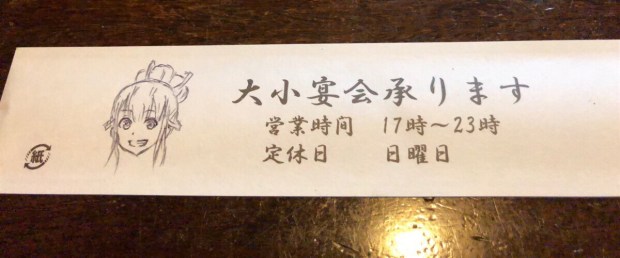 大小宴会承ります
営業時間　17時～23時
定休日　　日曜日
紙